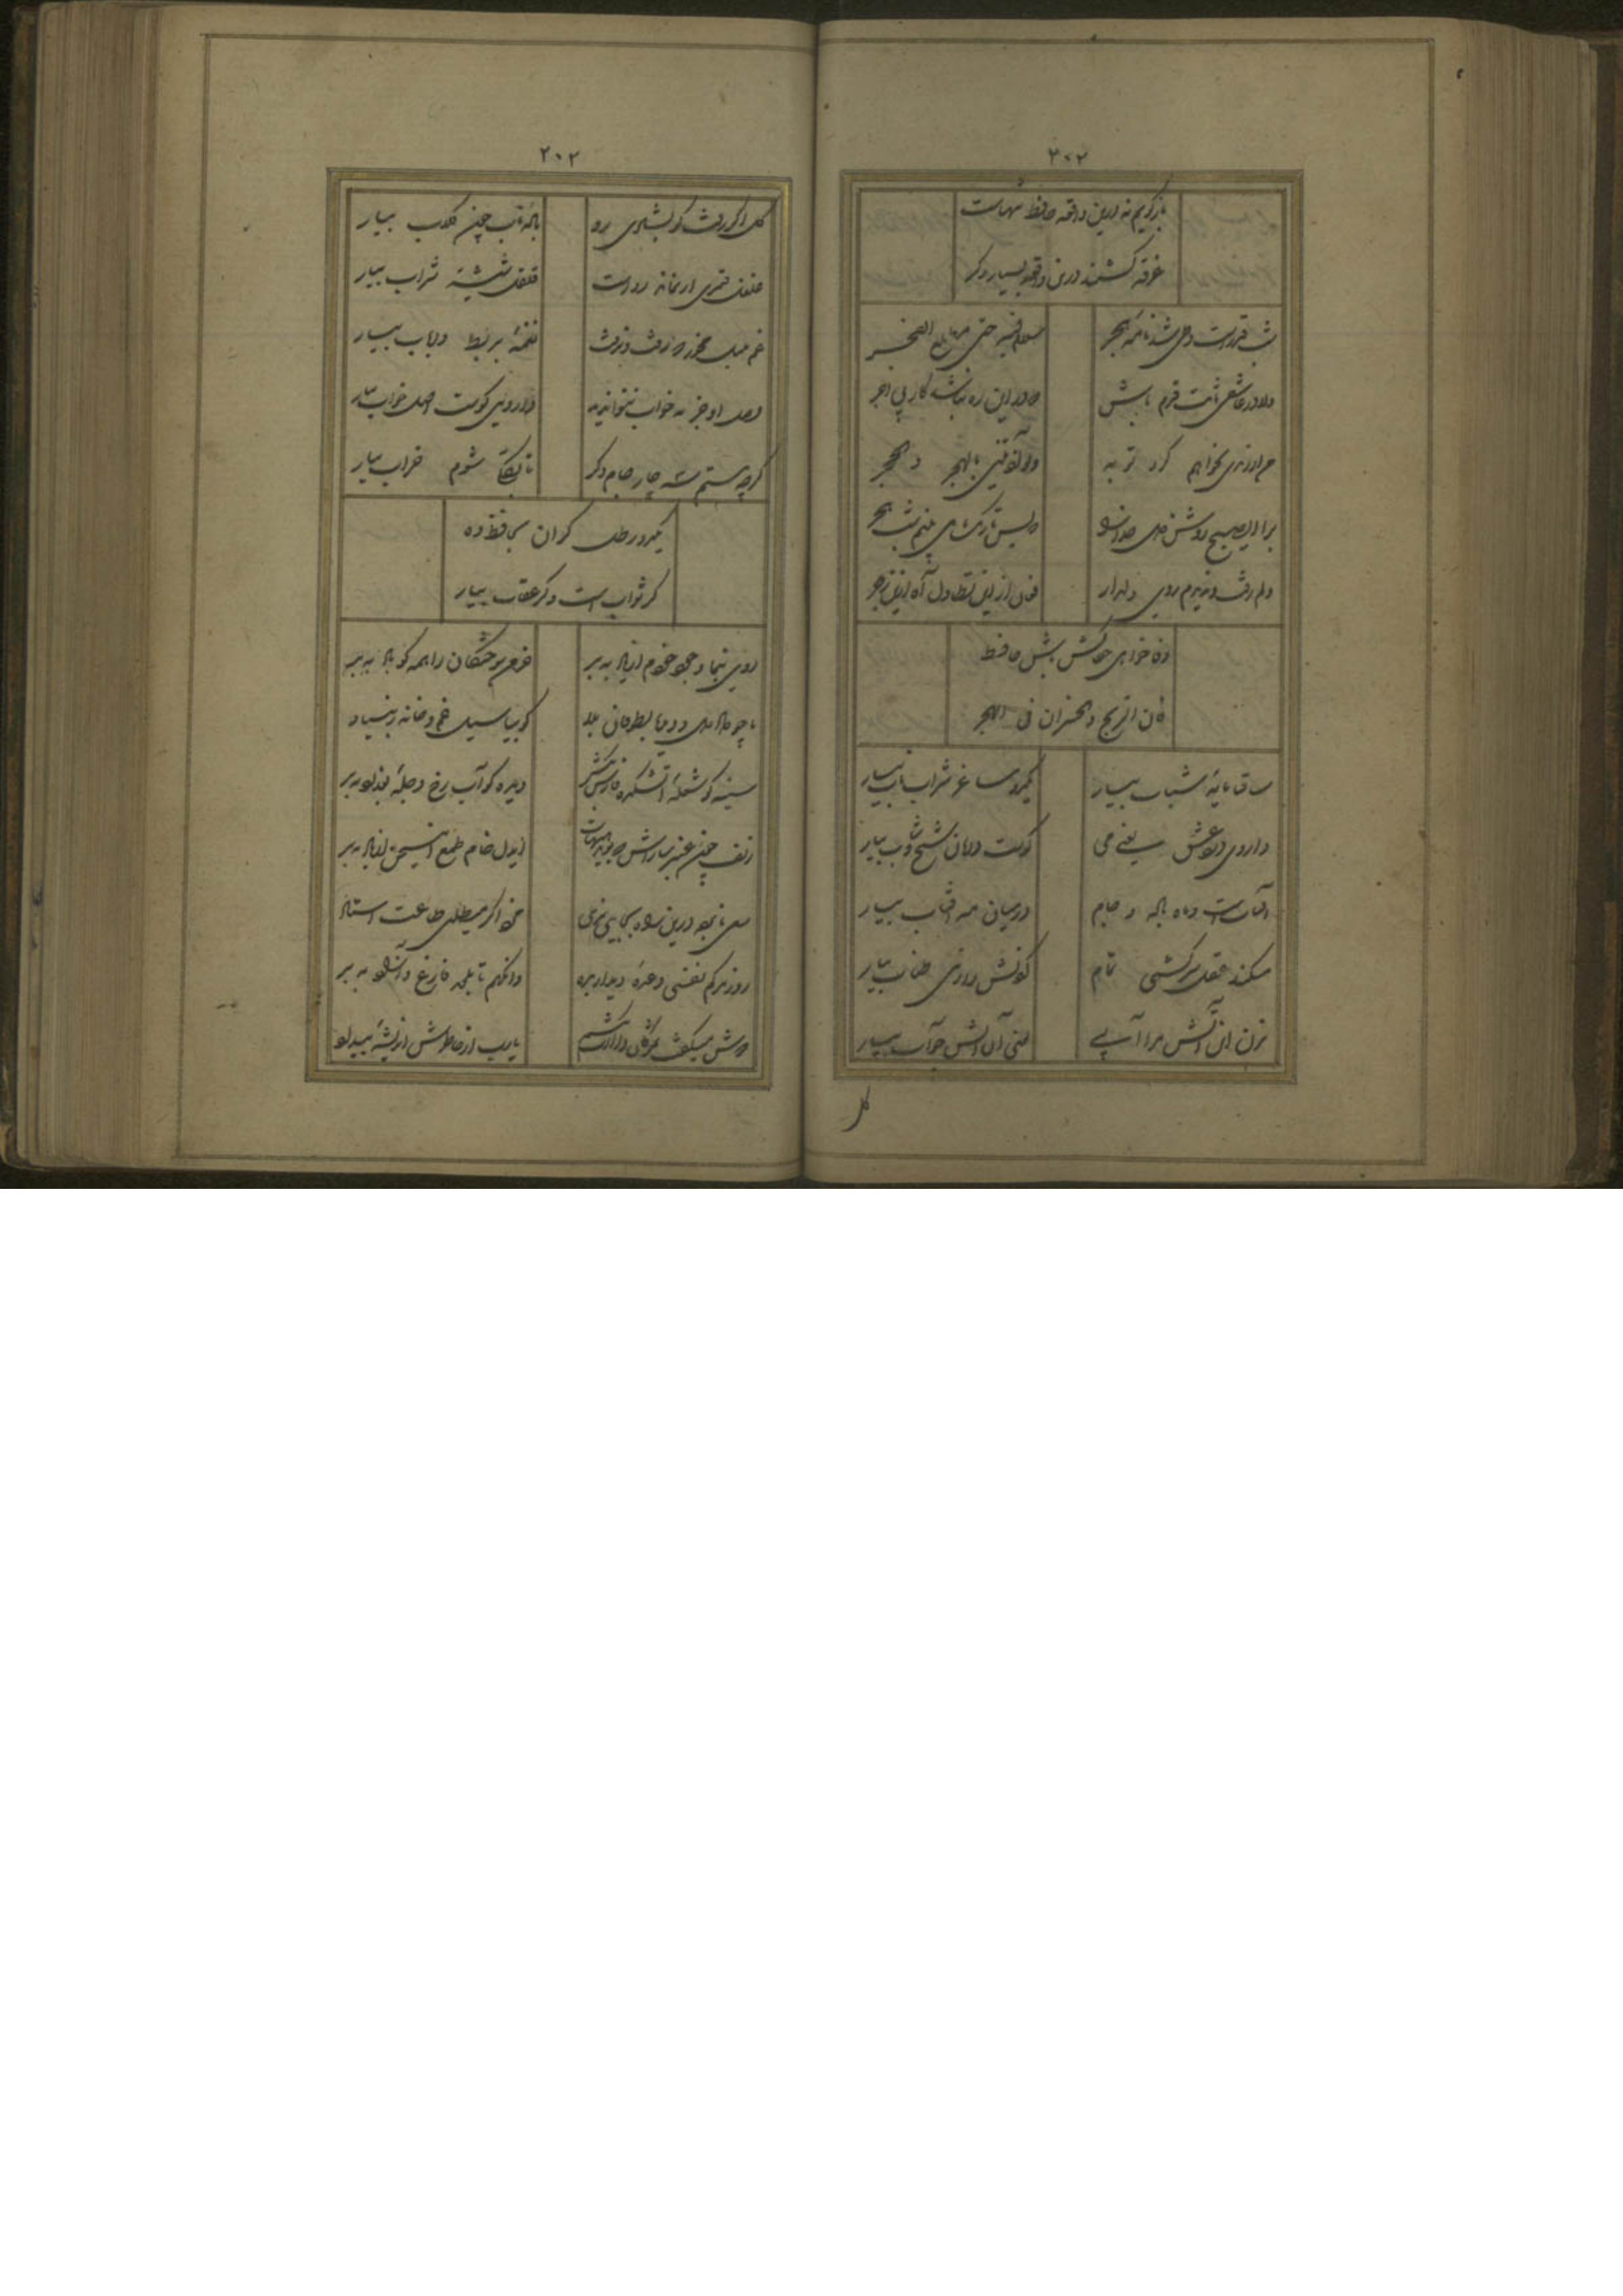 ۲۰۲
بازگویم نه درین واقعه حافظ تنهاست
غرقه گشتند درین واقعه بسیار دگر
شب قدرست و طی شد نامه هجر
سلام فیه حتی مطلع الفجر
دلا در عاشقی ثابت قدم باش
که در این ره نباشد کار بی اجر
من از رندی نخواهم کرد توبه
ولو آذیتنی بالهجر و الحجر
برا ای صبح روشن دل خدا را
که بس تاریک می بینم شب هجر
دلم رفت و ندیدم روی دلدار
فغان از این تطاول آه ازین زجر
وفا خواهی جفاکش باش حافظ
فان الربح والخسران فی الهجر
ساقیا مایه شباب بیار
یکدو ساغر شراب ناب بیار
داروی درد عشق یعنی می
کوست درمان شیخ و شاب بیار
آفتابست و ماه باده و جام
در میان مه آفتاب بیار
میکند عقل سرکشی تمام
گردنش را ز می طناب بیار
بزن این آتش مرا آبی
یعنی آن آتش چو آب بیار
کل
۲۰۳
گل اگر رفت گو بشادی رو
باده ناب چون گلاب بیار
غلغل قمری ار نماند رواست
قلقل شیشه شراب بیار
غم مخور که رفت و نرفت
نغمه بربط و رباب بیار
وصل او جز به خواب نتوان دید
داروئی کوست اصل خواب بیار
گرچه مستم سه چار جام دگر
تا بکلی شوم خراب بیار
یکدو رطل گران بحافظ ده
گر ثوابست و گر عقاب بیار
روی بنما و وجود خودم از یاد ببر
خرمن سوختگان را همه گو باد ببر
ما چو دادیم دل و دیده بطوفان بلا
گو بیا سیل غم و خانه ز بنیاد ببر
سینه گو شعله آتشکده فارس بکش
دیده گو آب رخ دجله بغداد ببر
زلف چون عنبر سارایش که ببوید هیهات
ای دل خام طمع این سخن از یاد ببر
سعی نابرده درین راه بجایی نرسی
مزد اگر میطلبی طاعت استاد ببر
روز مرگم نفسی وعده دیدار بده
وانگهم تا بلحد فارغ و آزاد ببر
دوش میگفت بمژگان درازت بکشم
یارب از خاطرش اندیشه بیداد ببر